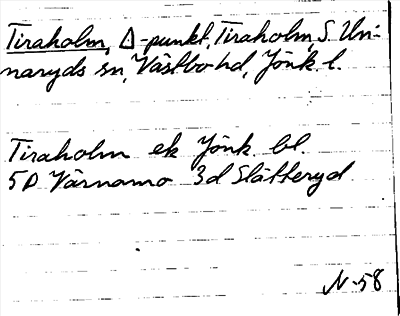 Tiraholm, Δ-punkt, Tiraholm, S. Un-
naryds sn, Västbo hd, Jönk. l.
Tiraholm ek Jönk. bl.
5D Värnamo 3d Slätteryd
N-58